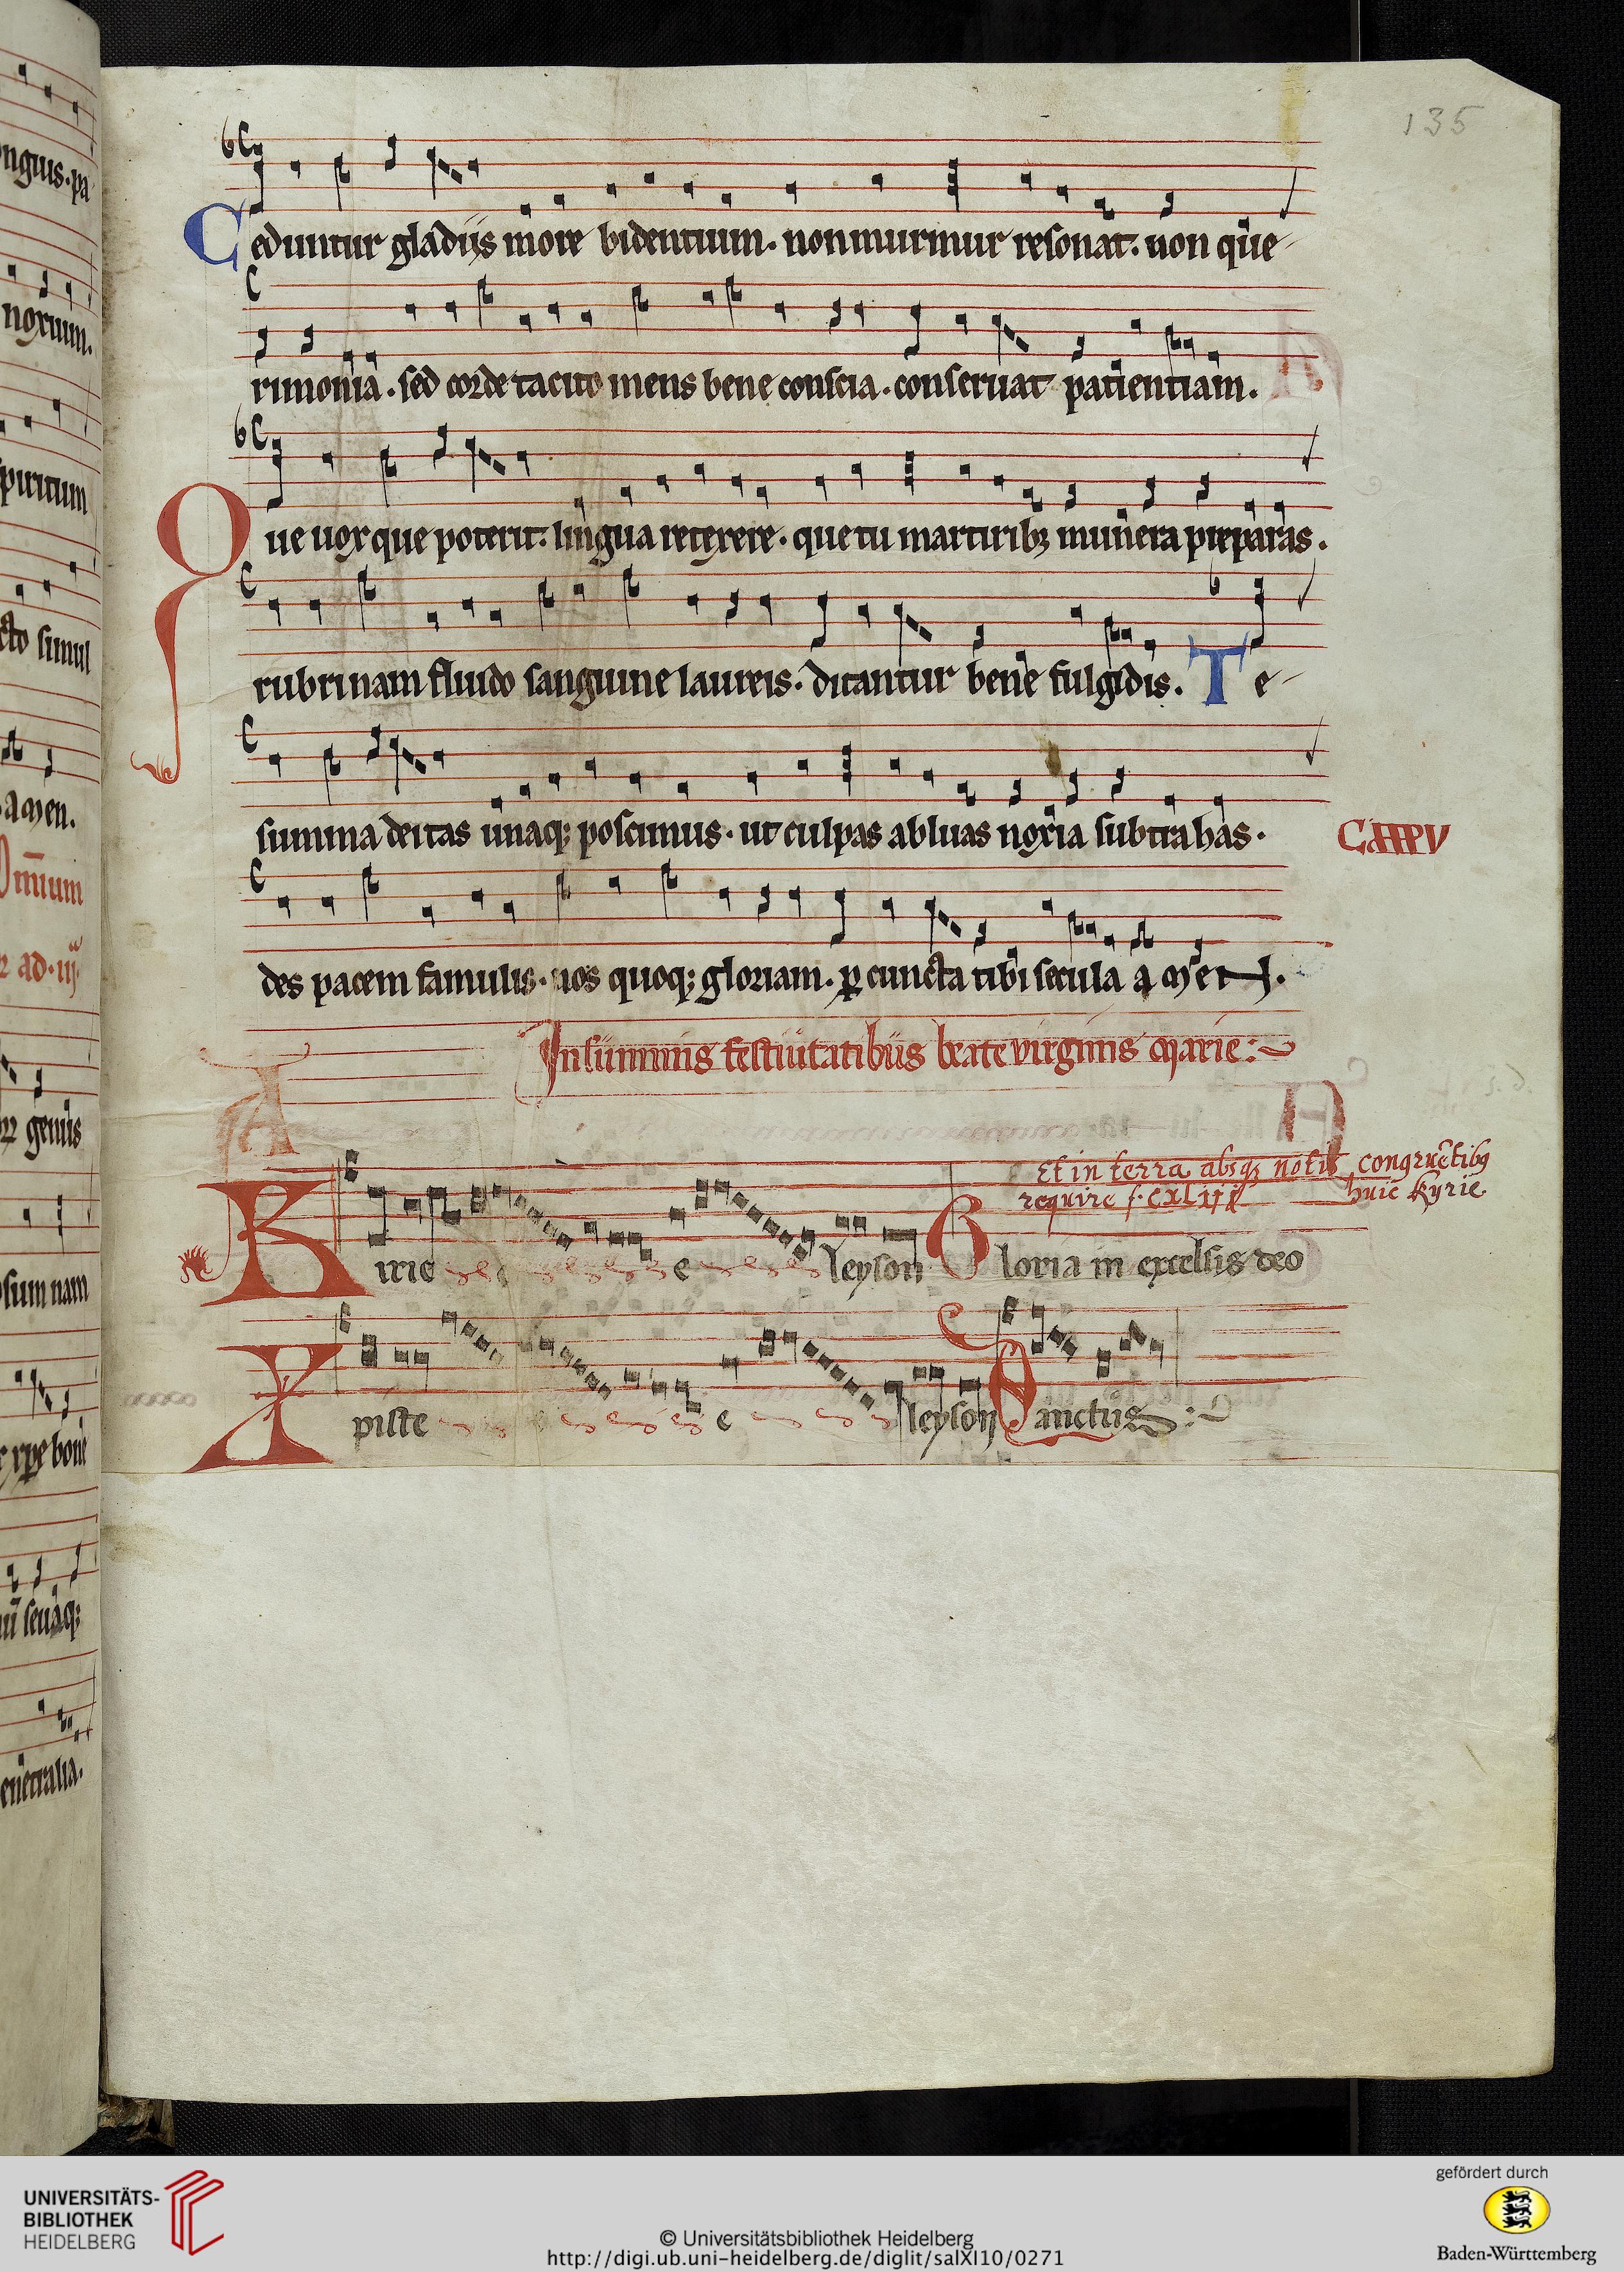 135
Ceduntur gladiis more bidentium. non murmur resonat. non que-
rimonia. sed corde tacito mens bene conscia. conseruat patientiam.
Que uox que poterit. lingua retexere. que tu martiribꝫ munera preparas.
rubri nam fluido sanguine laureis. ditantur bene fulgidis. Te-
summa deitas unaqꝫ poscimus. ut culpas abluas noxia subtrahas.
des pacem famulis. nos quoqꝫ gloriam. ꝑ cuncta tibi secula amen.
In summis festiuitatibus beate virginis marie:
Et in terra absqꝫ notis congruētibꝫ
require f. cxlııȷ huic Kyrie
Kirie e leyson Gloria in excelsis deo
Xpiste e leyson Sanctus:
ongius. pa
noxium.
spiritum
cto simul
amen.
Om̄ium
ad. iij.
genus
sum nam
xpe bone
seuaqꝫ
enetralia.
UNIVERSITÄTS-
BIBLIOTHEK
HEIDELBERG
© Universitätsbibliothek Heidelberg
http://digi.ub.uni-heidelberg.de/diglit/salXI10/0271
gefördert durch
Baden-Württemberg